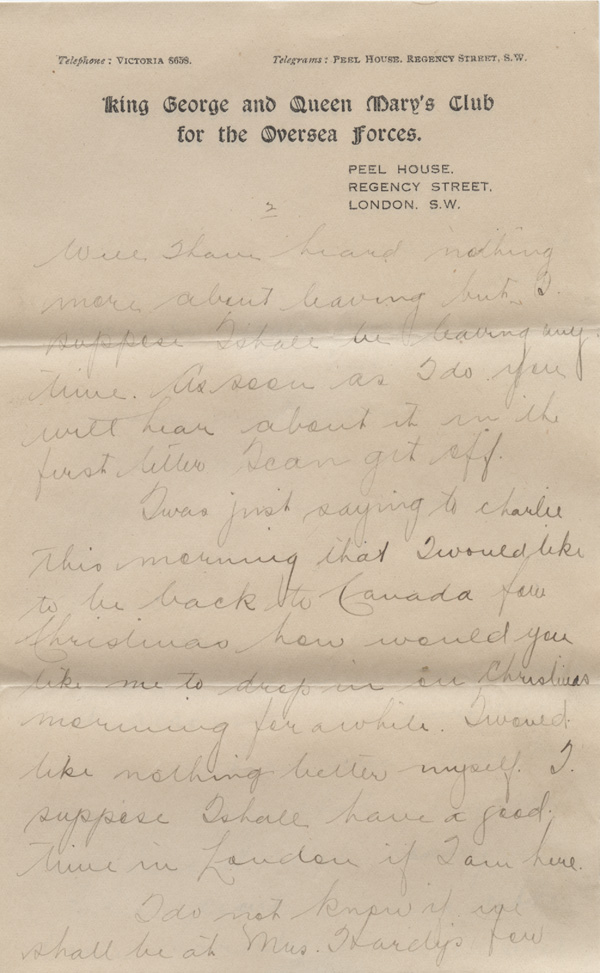 Telephone: VICTORIA 8638. Telegrams: PEEL HOUSE. REGENCY STREET, S.W.
King George and Queen Mary's Club
for the Oversea Forces.
PEEL HOUSE.
REGENCY STREET,
LONDON. S.W.
2
Well I have heard nothing
more about leaving but I.
suppose I shall be leaving any
time. As soon as I do you
will hear about it in the
first letter I can get off.
I was just saying to charlie
this morning that I would like
to be back to Canada for
Christmas how would you
like me to drop in on Christmas
morning for awhile. I would
like nothing better myself. I.
suppose I shall have a good
time in London if I am here.
I do not know if we
shall be at Mrs. Hardys for